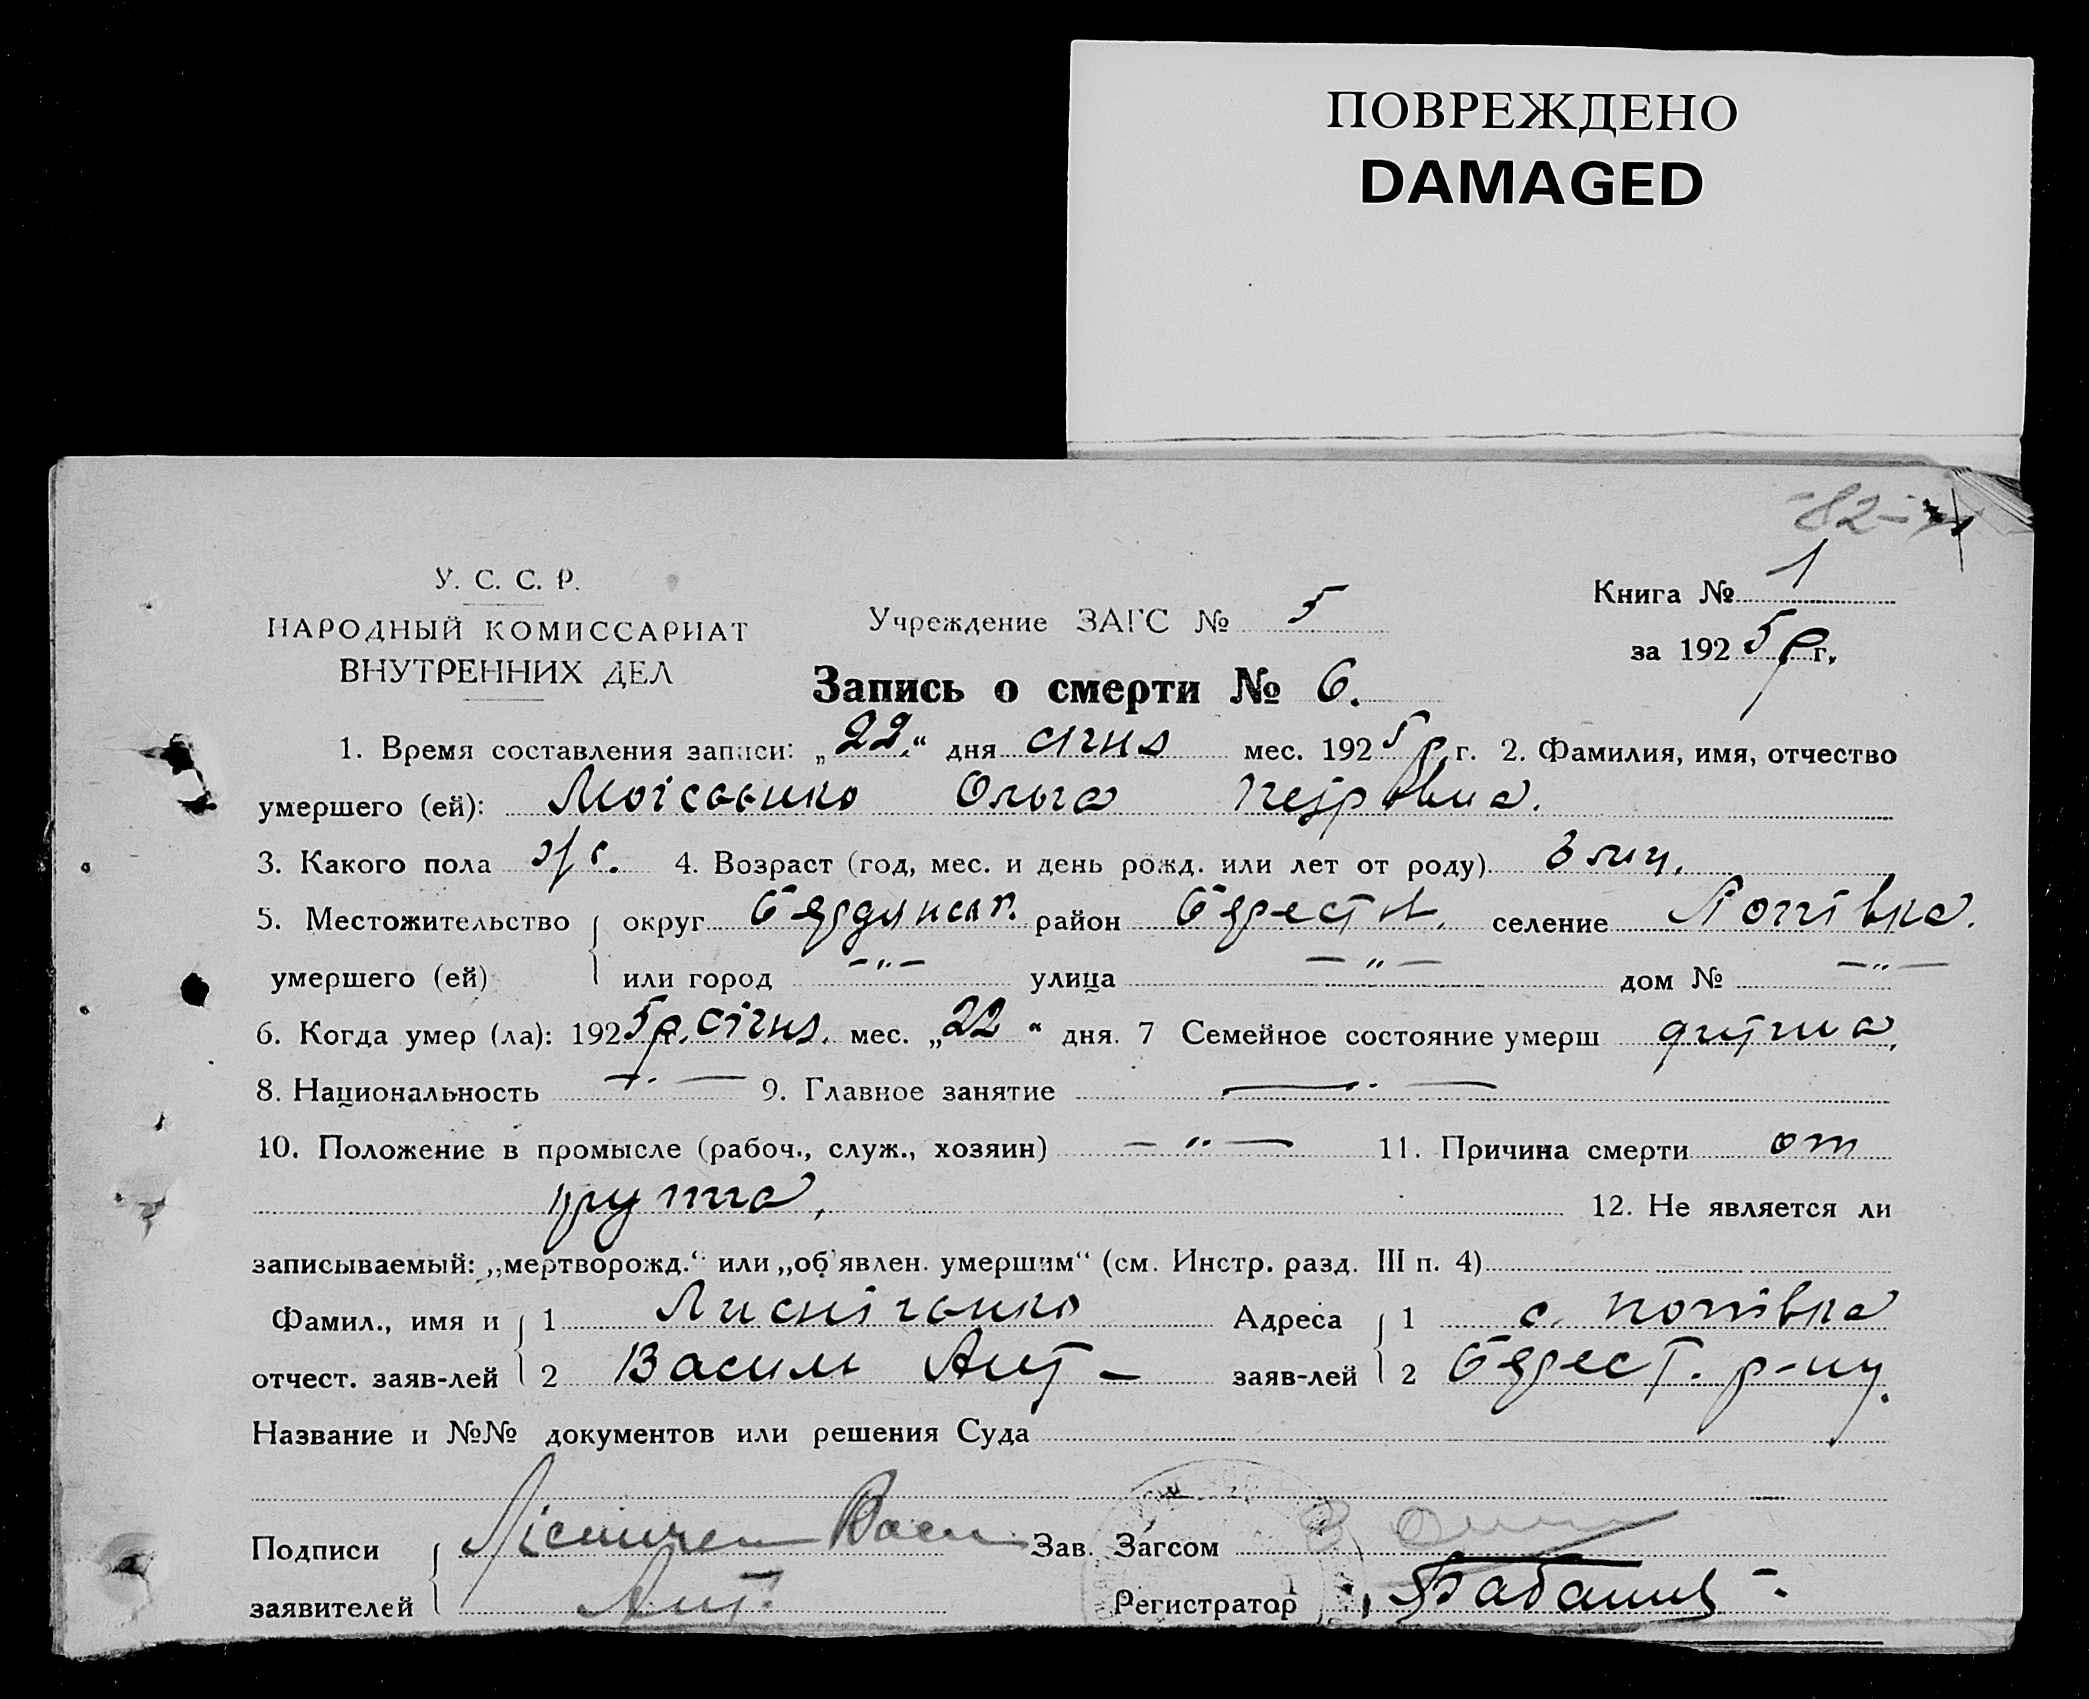 ПОВРЕЖДЕНО
DAMAGED
-82-
У. С. С. Р.
НАРОДНЫЙ КОМИССАРИАТ
ВНУТРЕННИХ ДЕЛ
Учреждение ЗАГС № 5
Книга № 1
за 1925 р г.
Запись о смерти № 6.
1. Время составления записи: „22“ дня січня мес. 1925 р г. 2. Фамилия, имя, отчество
умершего (ей): Моісеенко Ольга Петровна.
3. Какого пола ж. 4. Возраст (год, мес. и день рожд. или лет от роду)
5. Местожительство округ Бердянськ. район Берестів. селение Попівка.
умершего (ей) или город -„- улица -„- дом № -„-
6. Когда умер (ла): 1925 р. січня. мес. „22“ дня. 7 Семейное состояние умерш дитина.
8. Национальность — 9. Главное занятие —
10. Положение в промысле (рабоч., служ., хозяин) -„- 11. Причина смерти от
крупа,
12. Не является ли
записываемый: „мертворожд.“ или „об'явлен. умершим“ (см. Инстр. разд. III п. 4)
Фамил., имя и 1 Лисніченко Адреса 1 с. Попівка
отчест. заяв-лей 2 Васили Ант - заяв-лей 2 Берест. р-ну.
Название и №№ документов или решения Суда
Подписи Васи Зав. Загсом
заявителей Ант. Регистратор